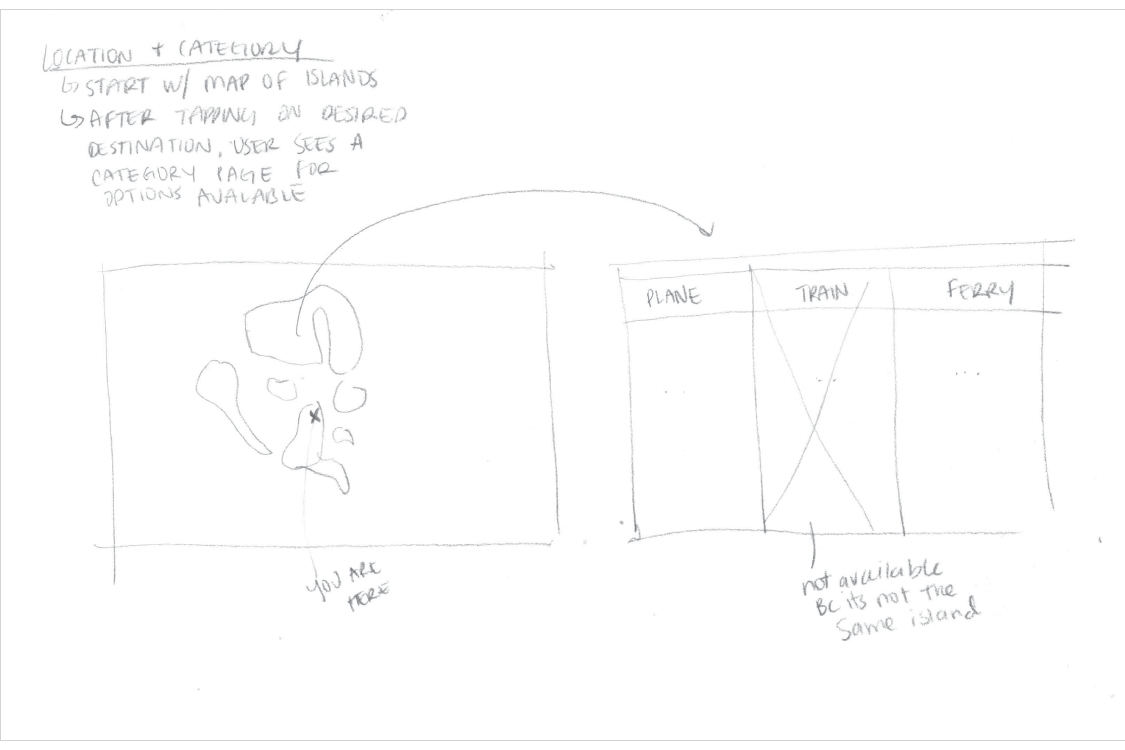 LOCATION + CATEGORY
↳ START W/ MAP OF ISLANDS
↳ AFTER TAPPING ON DESIRED
DESTINATION, USER SEES A
CATEGORY PAGE FOR
OPTIONS AVALABLE
PLANE
TRAIN
FERRY
...
...
...
YOU ARE
HERE
not available
BC its not the
Same island